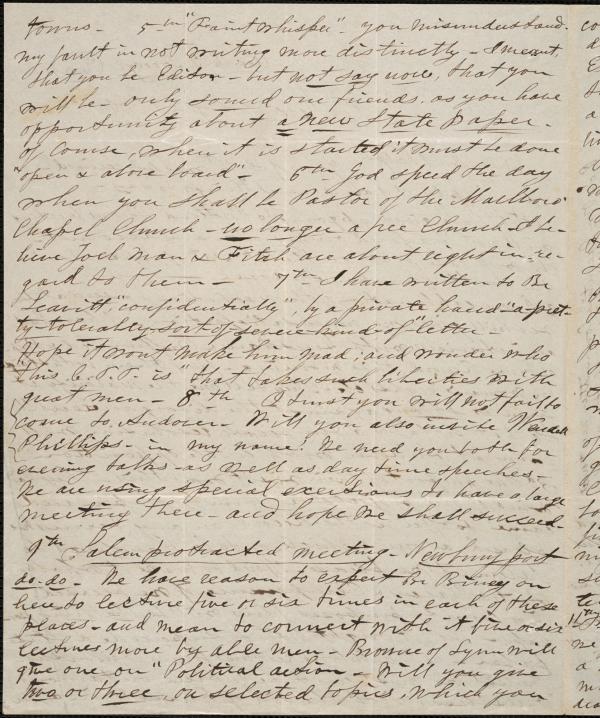 towns - 5th "Faint whisper" - you misunderstand.
my fault in not writing more distinctly - I meant,
that you be Editor - but not say now, that you
will be - only sound our friends, as you have
opportunity about a new State paper -
of course, when it is started it must be done
"open & above board" - 6th God speed the day
when you shall be Pastor of the Marlboro
Chapel Church - no longer a free Church - I be-
lieve Joel Man & Fitch are about right in re-
gard to them - 7th I have written to Br
Leavitt, "confidentially", by a private hand "a pret-
ty-tolerably-sort of severe kind-of" letter -
Hope it wont make him mad; and wonder who
this C.T.T. is "that takes such liberties with
great men - 8th I trust you will not fail to
come to Andover - Will you also invite Wendell
Phillips - in my name? We need you both for
evening talks - as well as day time speeches -
We are using special exertions to have a large
meeting there - and hope we shall succeed -
9th Salem protracted meeting - Newburyport
do. do - We have reason to expect Br Birney on
here to lecture five or six times in each of these
places - and mean to connect with it five or six
lectures more by able men - of Lynn will
give one on "Political action - Will you give
two or three, on selected topics, which you